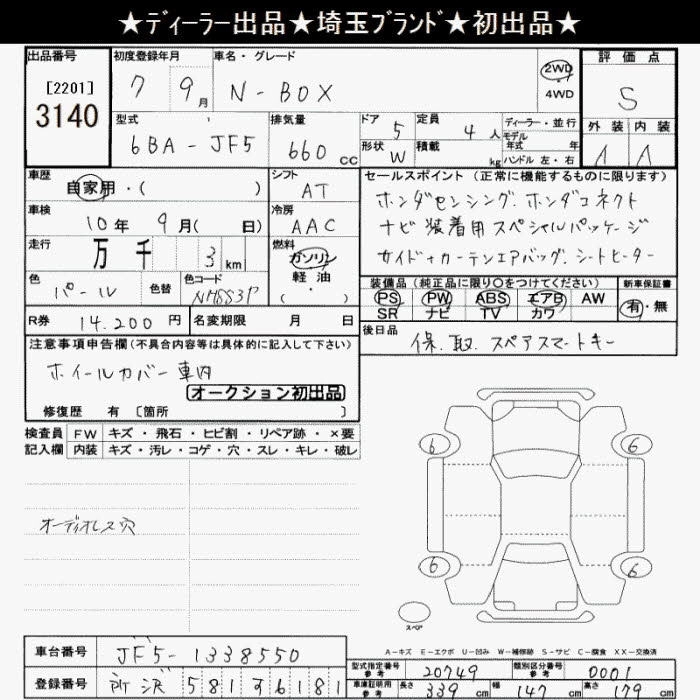 ★ディーラー出品★埼玉ブランド★初出品★
出品番号 初度登録年月 車名・グレード 評価点
[2201] 7 9月 N-BOX 2WD・4WD S
3140
型式 排気量 ドア 定員 ディーラー・並行 外装 内装
6BA-JF5 660cc 5 4人 モデル年式 年 A A
形状 積載 ハンドル 左・右
W kg
車歴 シフト セールスポイント (正常に機能するものに限ります)
自家用・( ) AT ホンダセンシング.ホンダコネクト
車検 冷房 ナビ装着用スペシャルパッケージ
10年 9月( 日) AAC サイド+カーテンエアバッグ.シートヒーター
走行 燃料
万 千 3km ガソリン
軽・油
(・)
色 色替 色コード 装備品 (純正品に限り○をつけてください) 新車保証書
パール NH883P PS PW ABS エアB AW 有・無
SR ナビ TV カワ
R券 14.200円 名変期限 月 日 後日品
保.取.スペアスマートキー
注意事項申告欄(不具合内容等は具体的に記入して下さい)
ホイールカバー車内
オークション初出品
修復歴 有 〔箇所 〕
検査員 FW キズ・飛石・ヒビ割・リペア跡・×要
記入欄 内装 キズ・汚レ・コゲ・穴・スレ・キレ・破レ
6 6
オーディオレス穴
6 6
スペア
A−キズ E−エクボ U−凹み W−補修跡 S−サビ C−腐食 XX−交換済
車台番号 JF5-1338550
型式指定番号 参考 20749 類別区分番号 参考 0001
登録番号 所沢 581 す 6181
車庫証明用 参考 長さ 339cm 幅 147cm 高さ 179cm